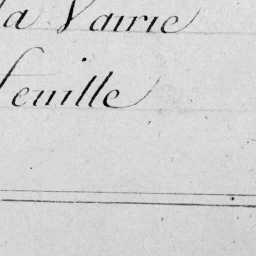 la Vairie
feuille